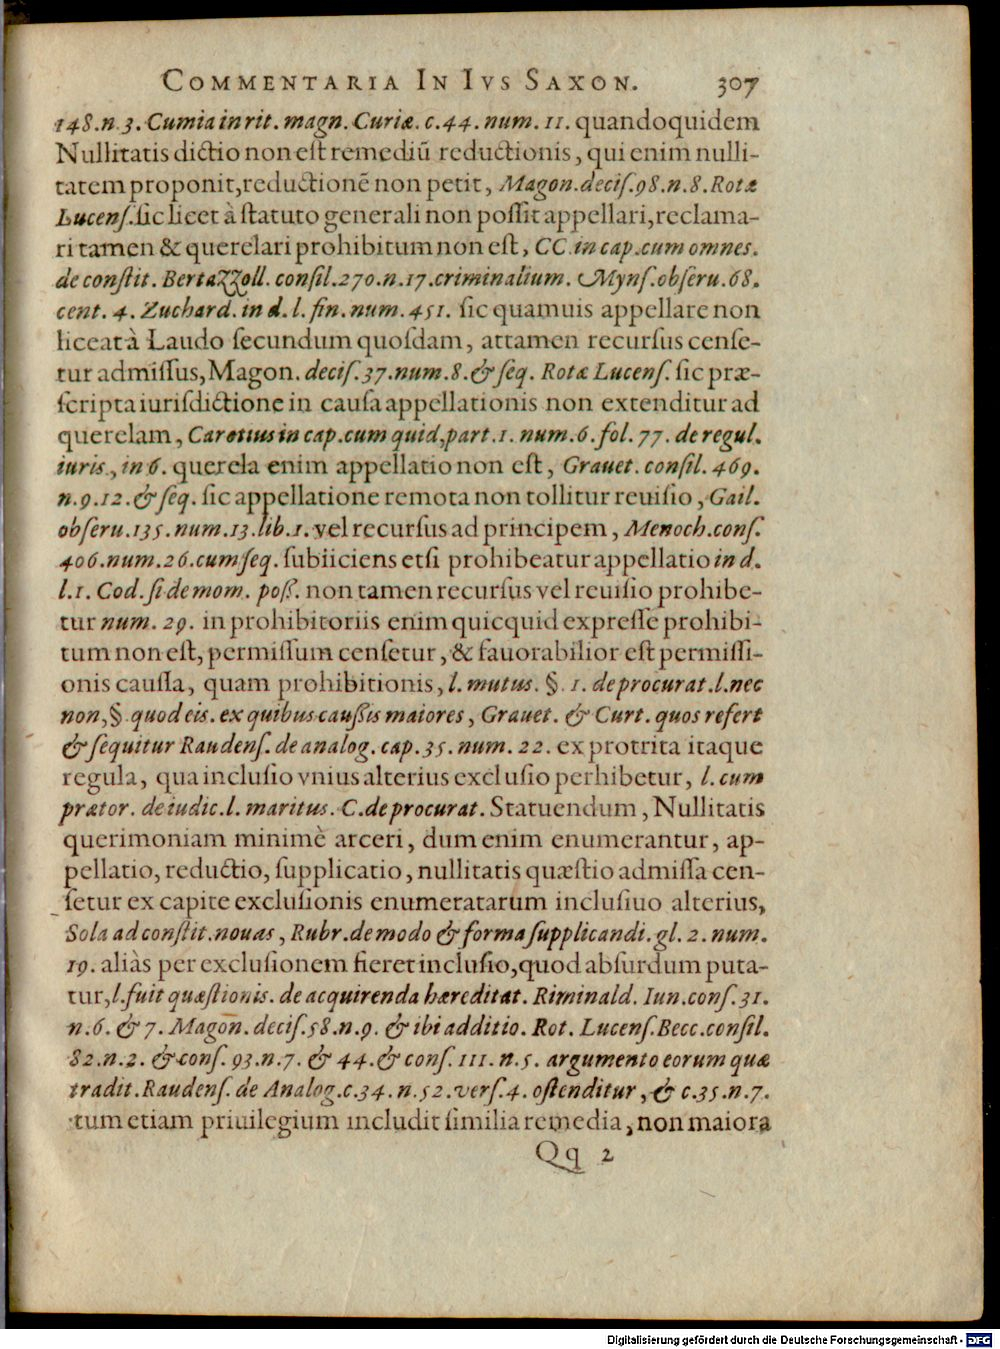 COMMENTARIA IN IVS SAXON. 307
148.n.3. Cumia in rit. magn. Curiæ. c.44. num. 11. quandoquidem
Nullitatis dictio non eſt remediū reductionis, qui enim nulli-
tatem proponit, reductionē non petit, Magon.deciſ.98.n.8.Rotæ
Lucenſ. ſic licet à ſtatuto generali non poſſit appellari, reclama-
ri tamen & querelari prohibitum non eſt, CC. in cap. cum omnes.
de conſtit. Bertazzoll. conſil.270.n.17.criminalium. Mynſ.obſeru.68.
cent. 4. Zuchard. in d. l. fin. num. 451. ſic quamuis appellare non
liceat à Laudo ſecundum quoſdam, attamen recurſus cenſe-
tur admiſſus, Magon. deciſ. 37. num. 8. & ſeq. Rotæ Lucenſ. ſic præ-
ſcripta iuriſdictione in cauſa appellationis non extenditur ad
querelam, Caretius in cap. cum quid, part. 1. num. 6. fol. 77. de regul.
iuris, in 6. querela enim appellatio non eſt, Grauet. conſil. 469.
n.9.12. & ſeq. ſic appellatione remota non tollitur reuiſio, Gail.
obſeru.135.num.13.lib.1. vel recurſus ad principem, Menoch.conſ.
406.num.26.cum ſeq. ſubiiciens etſi prohibeatur appellatio in d.
l.1. Cod. ſi de mom. poſſ. non tamen recurſus vel reuiſio prohibe-
tur num. 29. in prohibitoriis enim quicquid expreſſe prohibi-
tum non eſt, permiſſum cenſetur, & fauorabilior eſt permiſſi-
onis cauſſa, quam prohibitionis, l. mutus. §. 1. de procurat. l. nec
non, §. quod eis. ex quibus cauſſis maiores, Grauet. & Curt. quos refert
& ſequitur Raudenſ. de analog. cap. 35. num. 22. ex protrita itaque
regula, qua incluſio vnius alterius excluſio perhibetur, l. cum
prætor. de iudic. l. maritus. C. de procurat. Statuendum, Nullitatis
querimoniam minimè arceri, dum enim enumerantur, ap-
pellatio, reductio, ſupplicatio, nullitatis quæſtio admiſſa cen-
ſetur ex capite excluſionis enumeratarum incluſiuo alterius,
Sola ad conſtit. nouas, Rubr. de modo & forma ſupplicandi. gl. 2. num.
19. aliàs per excluſionem fieret incluſio, quod abſurdum puta-
tur, l. fuit quæſtionis. de acquirenda hæreditat. Riminald. Iun. conſ. 31.
n. 6. & 7. Magon. deciſ. 58. n. 9. & ibi additio. Rot. Lucenſ. Becc. conſil.
82. n. 2. & conſ. 93. n. 7. & 44. & conſ. 111. n. 5. argumento eorum quæ
tradit. Raudenſ. de Analog. c. 34. n. 52. verſ. 4. oſtenditur, & c. 35. n. 7.
tum etiam priuilegium includit ſimilia remedia, non maiora
Qq 2
Digitalisierung gefördert durch die Deutsche Forschungsgemeinschaft - DFG